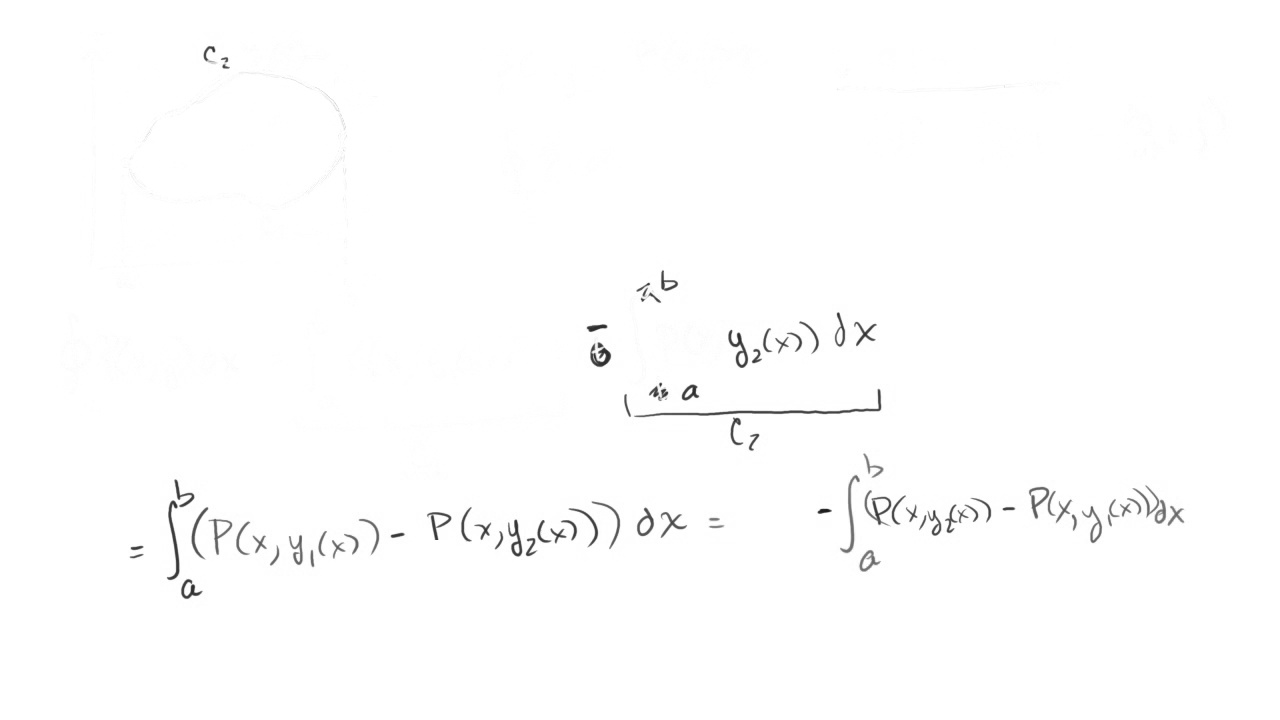 C₂
b
- y₂(x)) dx
a
C₂
= ∫ₐᵇ (P(x, y₁(x)) - P(x, y₂(x))) dx = - ∫ₐᵇ (P(x, y₂(x)) - P(x, y₁(x))) dx